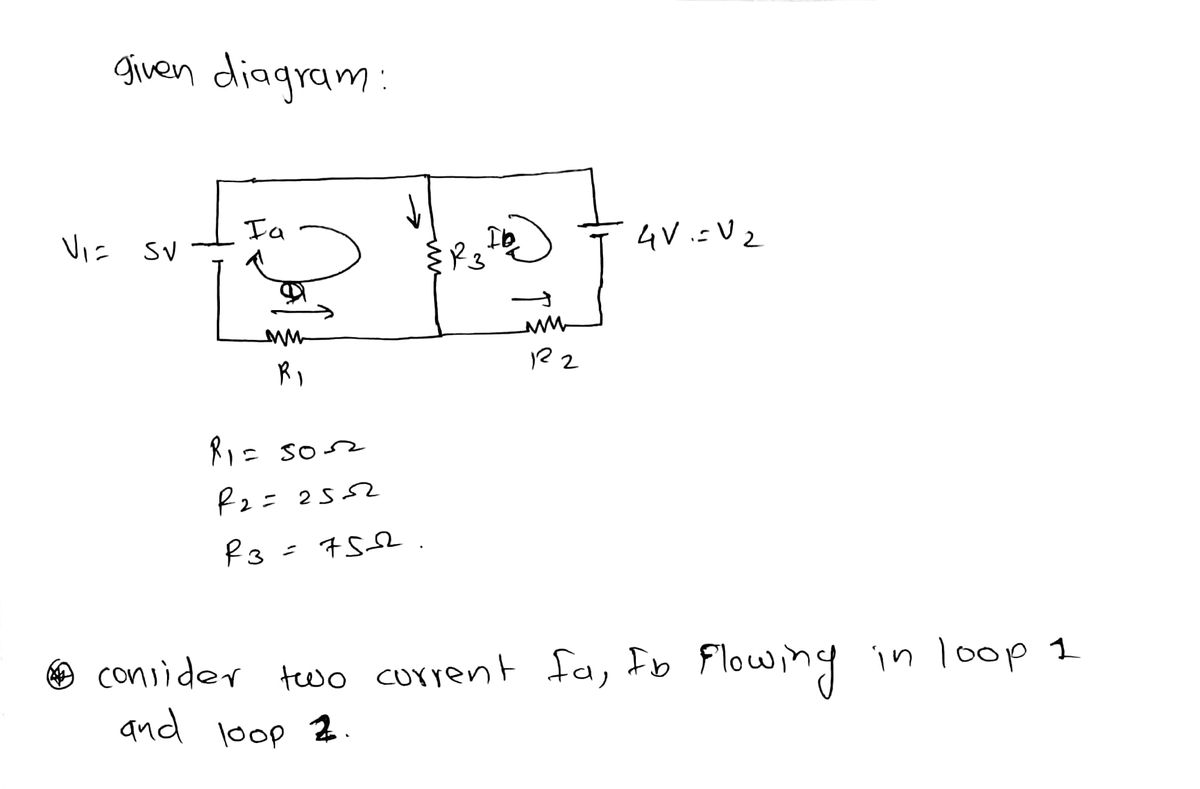 given diagram:
V1 = 5V
Ia
R3
Ib
4V.=V2
R1
R2
R1 = 50Ω
R2 = 25Ω
R3 = 75Ω.
consider two current Ia, Ib Flowing in loop 1
and loop 2.